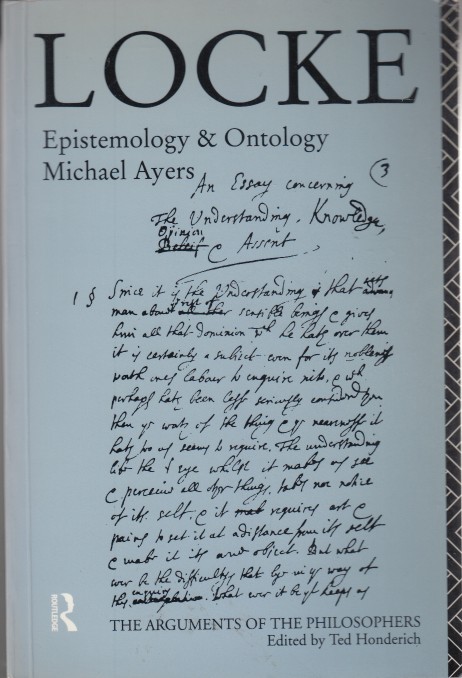 LOCKE
Epistemology & Ontology
Michael Ayers
3
An Essay concerning
The Understanding, Knowledge,
Opinion
Beleif & Assent
1 § Since it is the Understanding that sets
man above all other sensible beings & gives
him all that dominion wch he hath over them
it is certainly a subject even for its nobleness
worth our labour to enquire into, & wch
perhaps hath been lesse seriously considerd
then ye worth of the thing & ye nearenesse it
hath to us seems to require. The understanding
like the eye whilst it makes us see
& perceive all other things, takes noe notice
of its self. & it requires art &
pains to set it at a distance from its self
& make it its owne object. But what
ever be the difficultys that lye in ye way of
this enquiry. what ever it be yt keeps us
ROUTLEDGE
THE ARGUMENTS OF THE PHILOSOPHERS
Edited by Ted Honderich